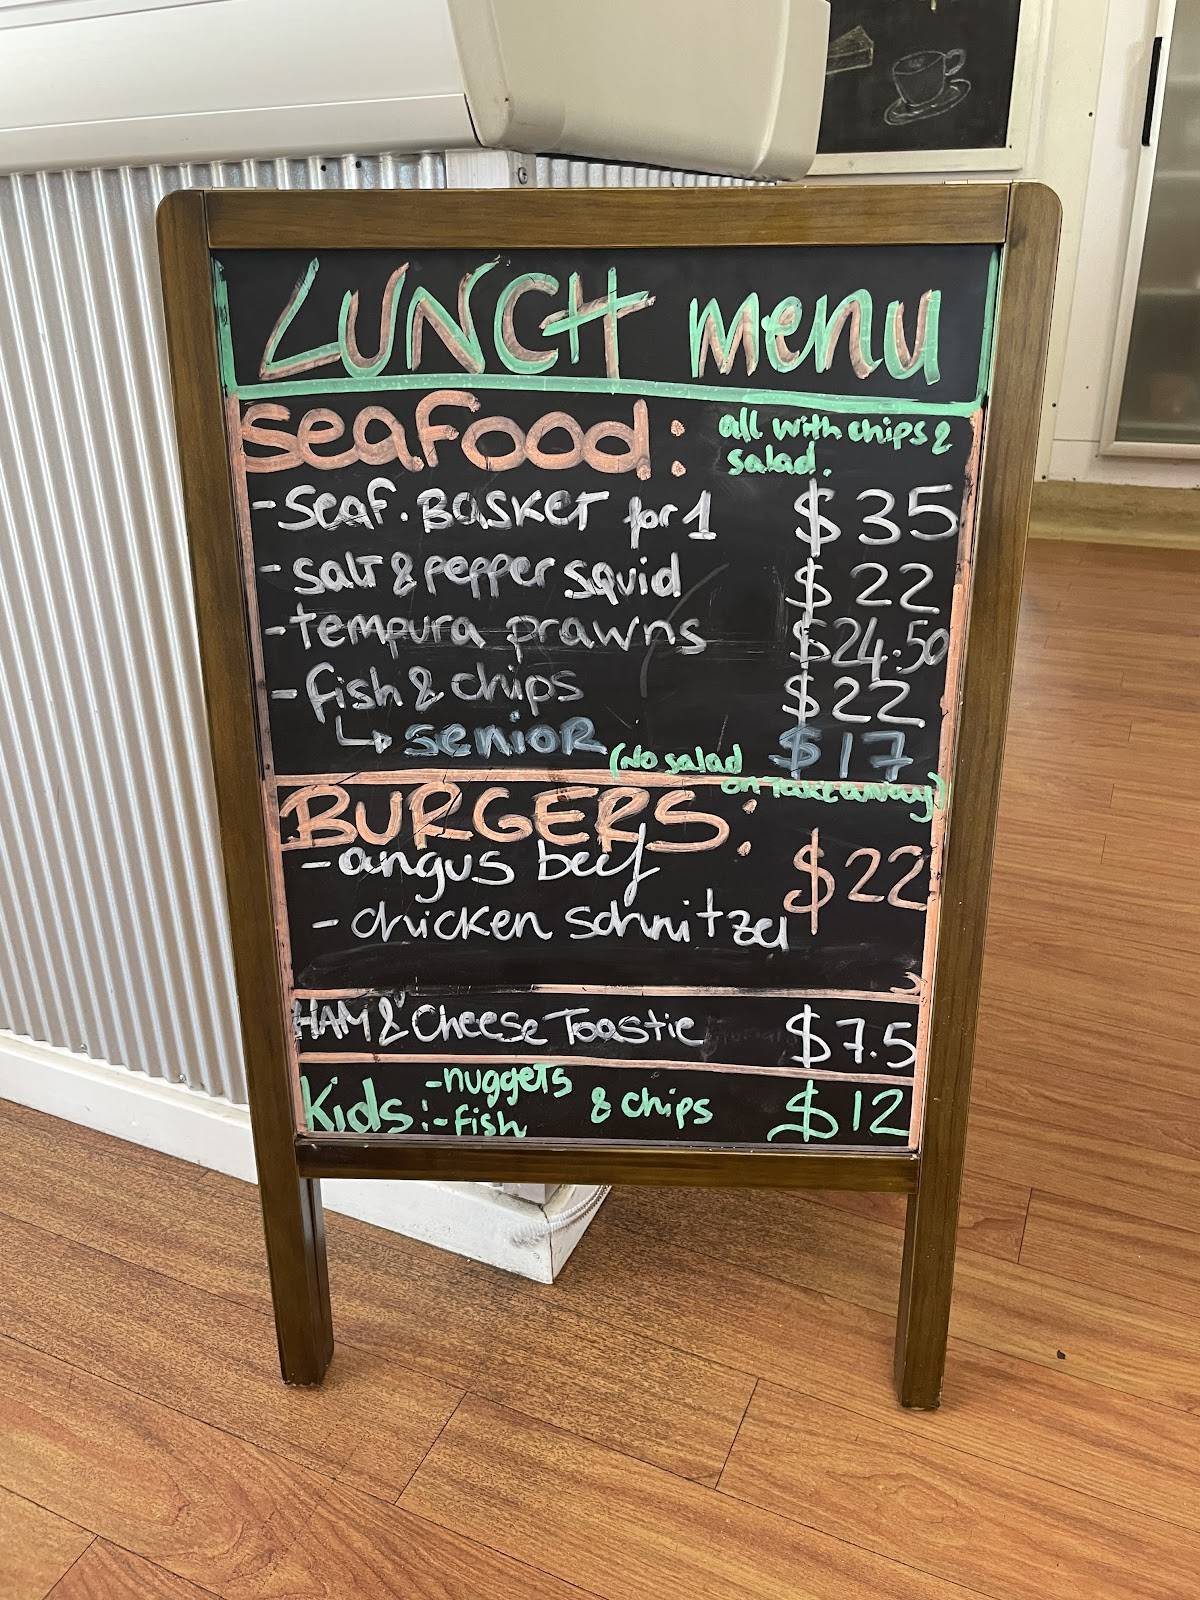 LUNCH menu
seafood: all with chips & salad.
- Seaf. BASKET for 1 $35
- salt & pepper squid $22
- tempura prawns $24.50
- fish & chips $22
↳ SENIOR $17
(No salad on Take away)
BURGERS:
- angus beef $22
- chicken schnitzel
HAM & Cheese Toastie $7.5
Kids: - nuggets & chips $12
- fish